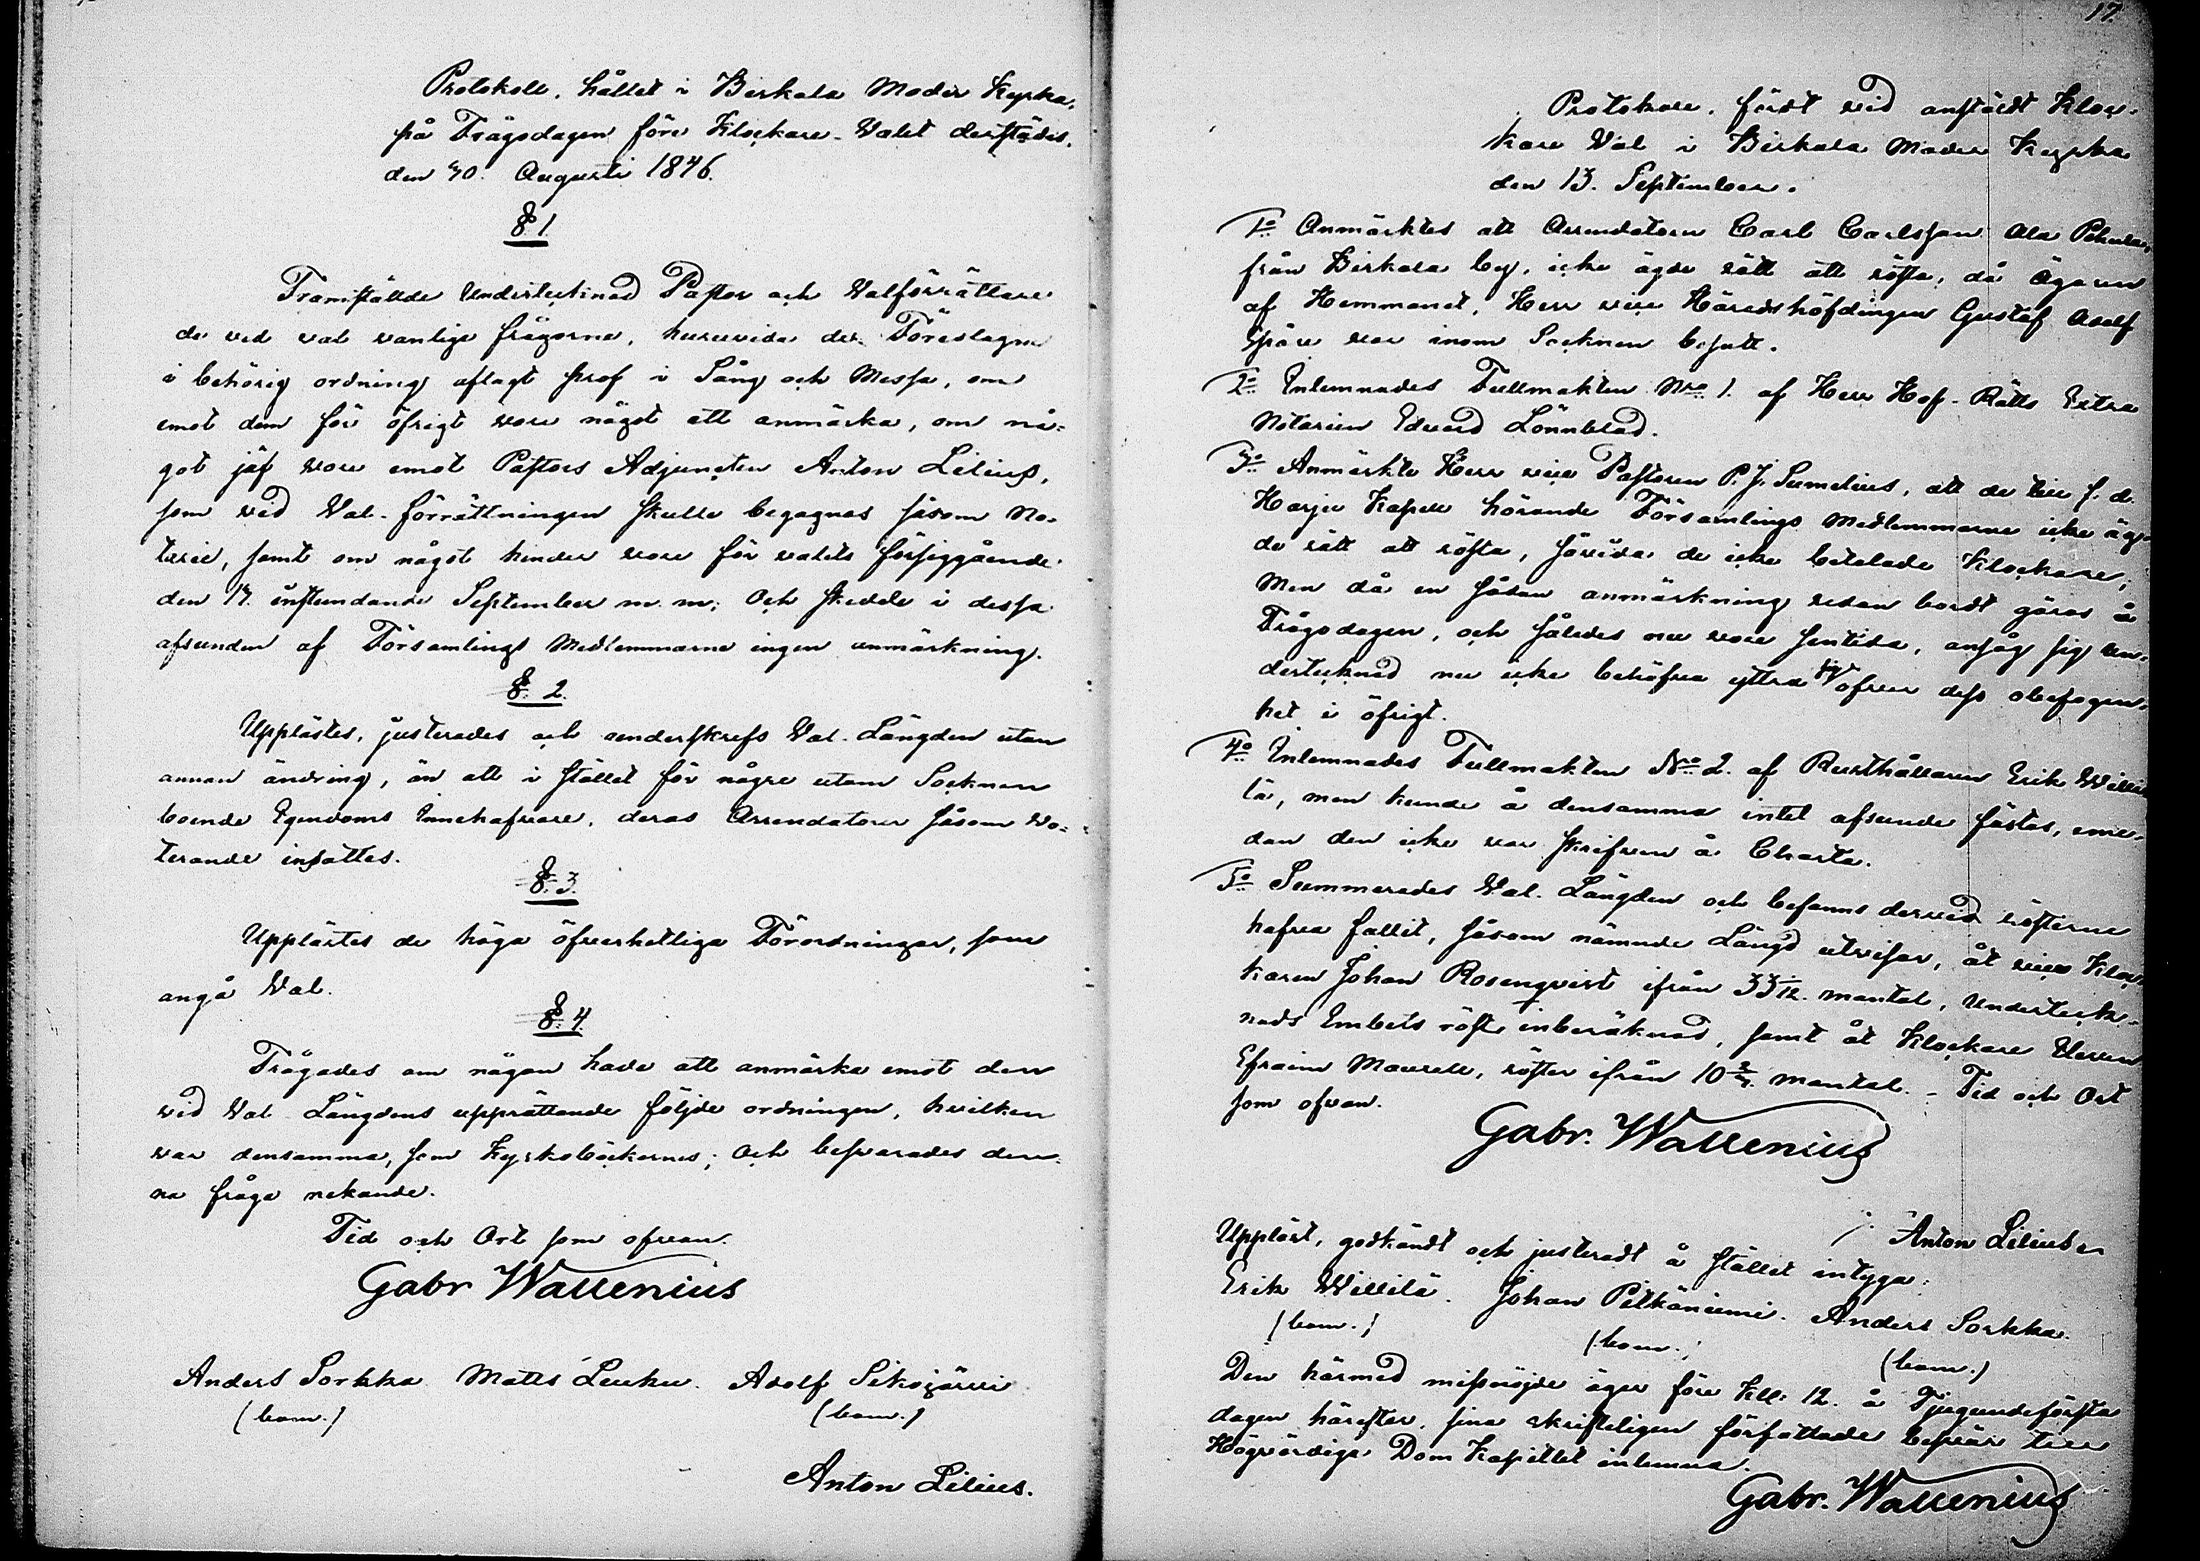 Protokoll, hållet i Birkala Moder Kyrka,
på Frågodagen före Klockare-Valet derstädes,
den 30. Augusti 1846.
§ 1.
Framställde Undertecknad Pastor och Valförrättare
de vid val vanliga frågorne, huruvida de Föreslagne
i behörig ordning aflagt prof i Sång och Messa, om
emot dem för öfrigt vore något att anmärka, om nå-
got jäf vore emot Pastors Adjuncten Anton Lilius,
som vid Val-förrättningen skulle begagnas såsom No-
tarie, samt om något hinder vore för valets försiggående
den 13. instundande September m. m; Och skedde i dessa
afseenden af Församlings Medlemmarne ingen anmärkning.
§. 2.
Upplästes, justerades och underskrefs Val-Längden utan
annan ändring, än att i stället för någre utom Socknen
boende Egendoms Innehafvare, deras Arrendatorer såsom Vo-
terande insattes.
§. 3.
Upplästes de höga öfverhetliga Förordningar, som
angå Val.
§. 4.
Frågades om någon hade att anmärka emot den
vid Val-Längdens upprättande följde ordningen, hvilken
var densamma, som Kyrkoböckernes; Och besvarades den-
na fråga nekande.
Tid och Ort som ofvan.
Gabr Wallenius
Anders Sorkka Matts Leuku. Adolf Sikojärvi
(bom.) (bom.)
Anton Lilius.
17.
Protokoll, fördt vid anstäldt Kloc-
kare Val i Birkala Moder Kyrka
den 13. September.
1o Anmärktes att Arrendatorn Carl Carlsson Ala Pehula,
från Birkala by, icke ägde rätt att rösta, då Ägaren
af Hemmanet, Herr vice Häradshöfdingen Gustaf Adolf
var inom Socknen bosatt.
2o Inlemnades Fullmakten Nro 1. af Herr Hof-Rätts Extra
Notarien Edvard Lönnblad.
3o Anmärkte Herr vice Pastoren P. J. Sumelius, att de till f. d.
Harju Kapell hörande Församlings Medlemmarne icke äg-
de rätt att rösta, såvida de icke betalade Klockare;
Men då en sådan anmärkning redan bordt göras å
Frågodagen, och således nu vore sentida, ansåg sig Un-
dertecknad nu icke behöfva yttra sig ofver dess obefogen-
het i öfrigt.
4o Inlemnades Fullmakten No 2. af Rusthållaren Erik Willi-
lä, men kunde å densamma intet afseende fästas, eme-
dan den icke var skrifven å Charta.
5o Summerades Val-Längden och befanns dervid rösterne
hafva fallit, såsom nämnde Längd utvisar, åt vice Kloc-
karen Johan Rosenqvist ifrån 33 1/12. mantal, Underteck-
nads Embets röst inberäknad, samt åt Klockare
Efraim Maurell, röster ifrån 10 mantal. – Tid och Ort
som ofvan.
Gabr. Wallenius
Anton Lilius
Uppläst, godkändt och justeradt å stället intyga:
Erik Willilä. Johan Pitkäniemi. Anders Sorkka.
(bom.) (bom.) (bom.)
Den härmed missnöjde äger före Kl: 12. å Tjugundeförsta
dagen härefter, sina skrifteligen författade besvär till
Högvördiga Dom Kapitlet inlemna.
Gabr. Wallenius